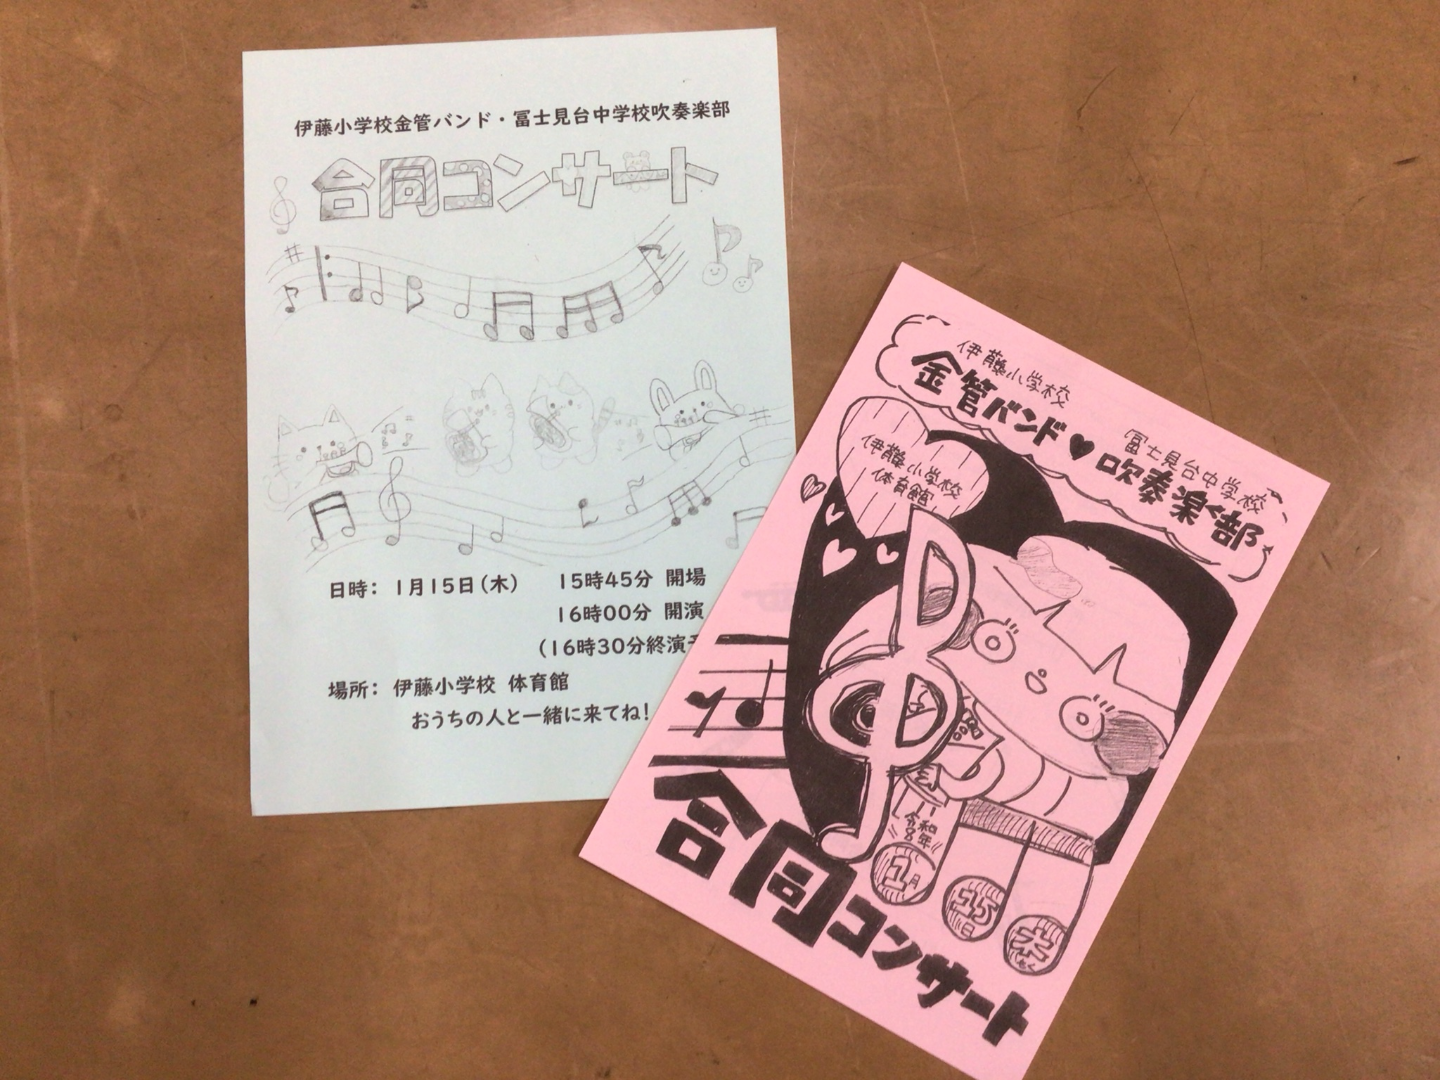 伊藤小学校金管バンド・冨士見台中学校吹奏楽部
合同コンサート
日時：1月15日（木） 15時45分 開場
16時00分 開演
（16時30分終演
場所：伊藤小学校 体育館
おうちの人と一緒に来てね！
伊藤小学校
金管バンド♥
冨士見台中学校
吹奏楽部
伊藤小学校
体育館
令和
8年
1月
15日
木
もく
合同コンサート